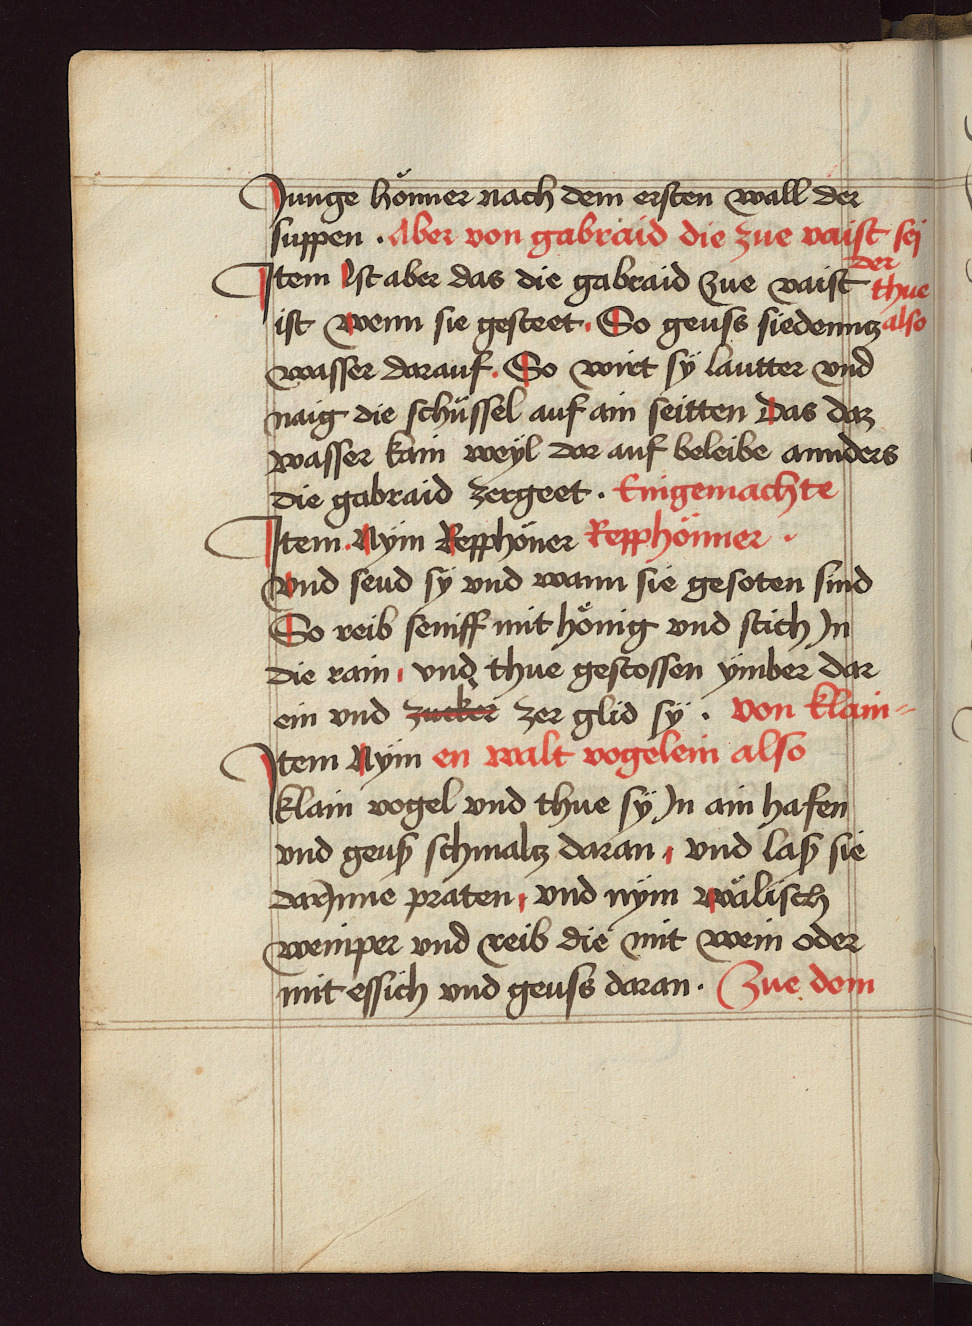 Junge hönner nach dem ersten wall der
suppen . Aber von gabraid die zue vaist sej
der
Item Ist aber das die gabraid zue vaist thue
ist wenn sie gesteet . So geuss siedenntz also
wasser darauf . So wirt sÿ lautter vnd
naig die schüssel auf ain seitten Das daz
wasser kain weÿl dar auf beleibe annders
die gabraid zergeet . Eingemachte
Item . Nÿm Repphöner Repphönner .
Vnd seud sÿ vnd wann sie gesoten sind
So reib seniff mit hönig vnd stich Jn
die rain , vnd thue gestossen ÿmber dar
ein vnd zucker zer glid sÿ . von klain=
Item Nÿm en walt vogelein also
klain vogel vnd thue sÿ Jn ain hafen
vnd geuß schmaltz daran , vnd laß sie
darJnne praten , vnd nÿm wälisch
weinper vnd reib die mit wein oder
mit essich vnd geuss daran . Zue dem